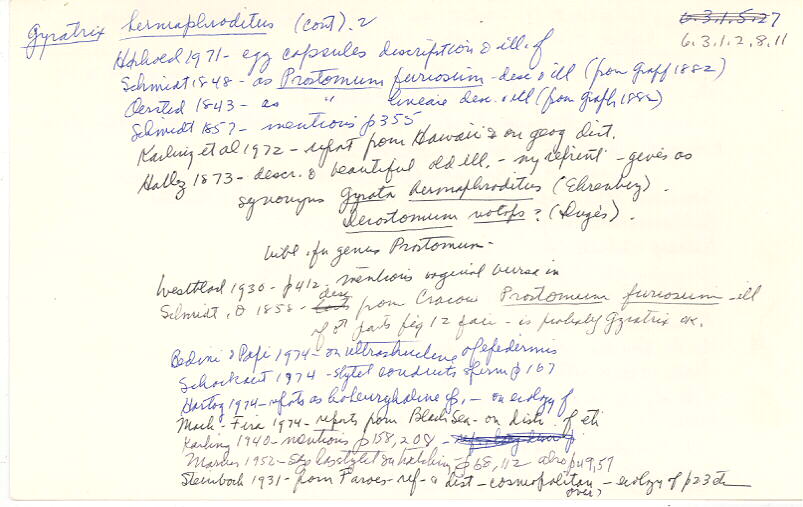 Gyratrix hermaphroditus (cont). 2
6.3.1.5.27
6.3.1.2.8.11
1971 - egg capsules description & ill. of
Schmidt 1848 - as Prostomum furiosum - desc & ill (from Graff 1882)
Oersted 1843 - as " lineare desc. & ill (from Graff 1882)
Schmidt 1857 - mentions p355
Karling et al 1972 - report from Hawaii & on geog dist.
Hallez 1873 - descr. & beautiful old ill. - my reprint - gives as
synonyms Gyrata hermaphroditus (Ehrenberg).
Derostomum notops? (Dugés).
bibl. for genus Prostomum -
Westblad 1930 - p412 - mentions vaginal bursa in
Schmidt, O 1858 - desc from Cracow Prostomum furiosum - ill
of ♂ parts fig 12 fair - is probably Gyratrix ok.
Bedini & Papi 1974 - on ultrastructure of epidermis
Schockaert 1974 - stylet conducts sperm p 167
Hartog 1974 - reports as holeuryhaline sp. - on ecology of
Mack-Fira 1974 - reports from Black Sea - on dist. of etc
Karling 1940 - mentions p158, 208 -
Marcus 1952 - has stylet on hatching - p68, 112 also p49, 57
Steinbock 1931 - from Faroes - ref - & dist - cosmopolitan - ecology of p23
over?